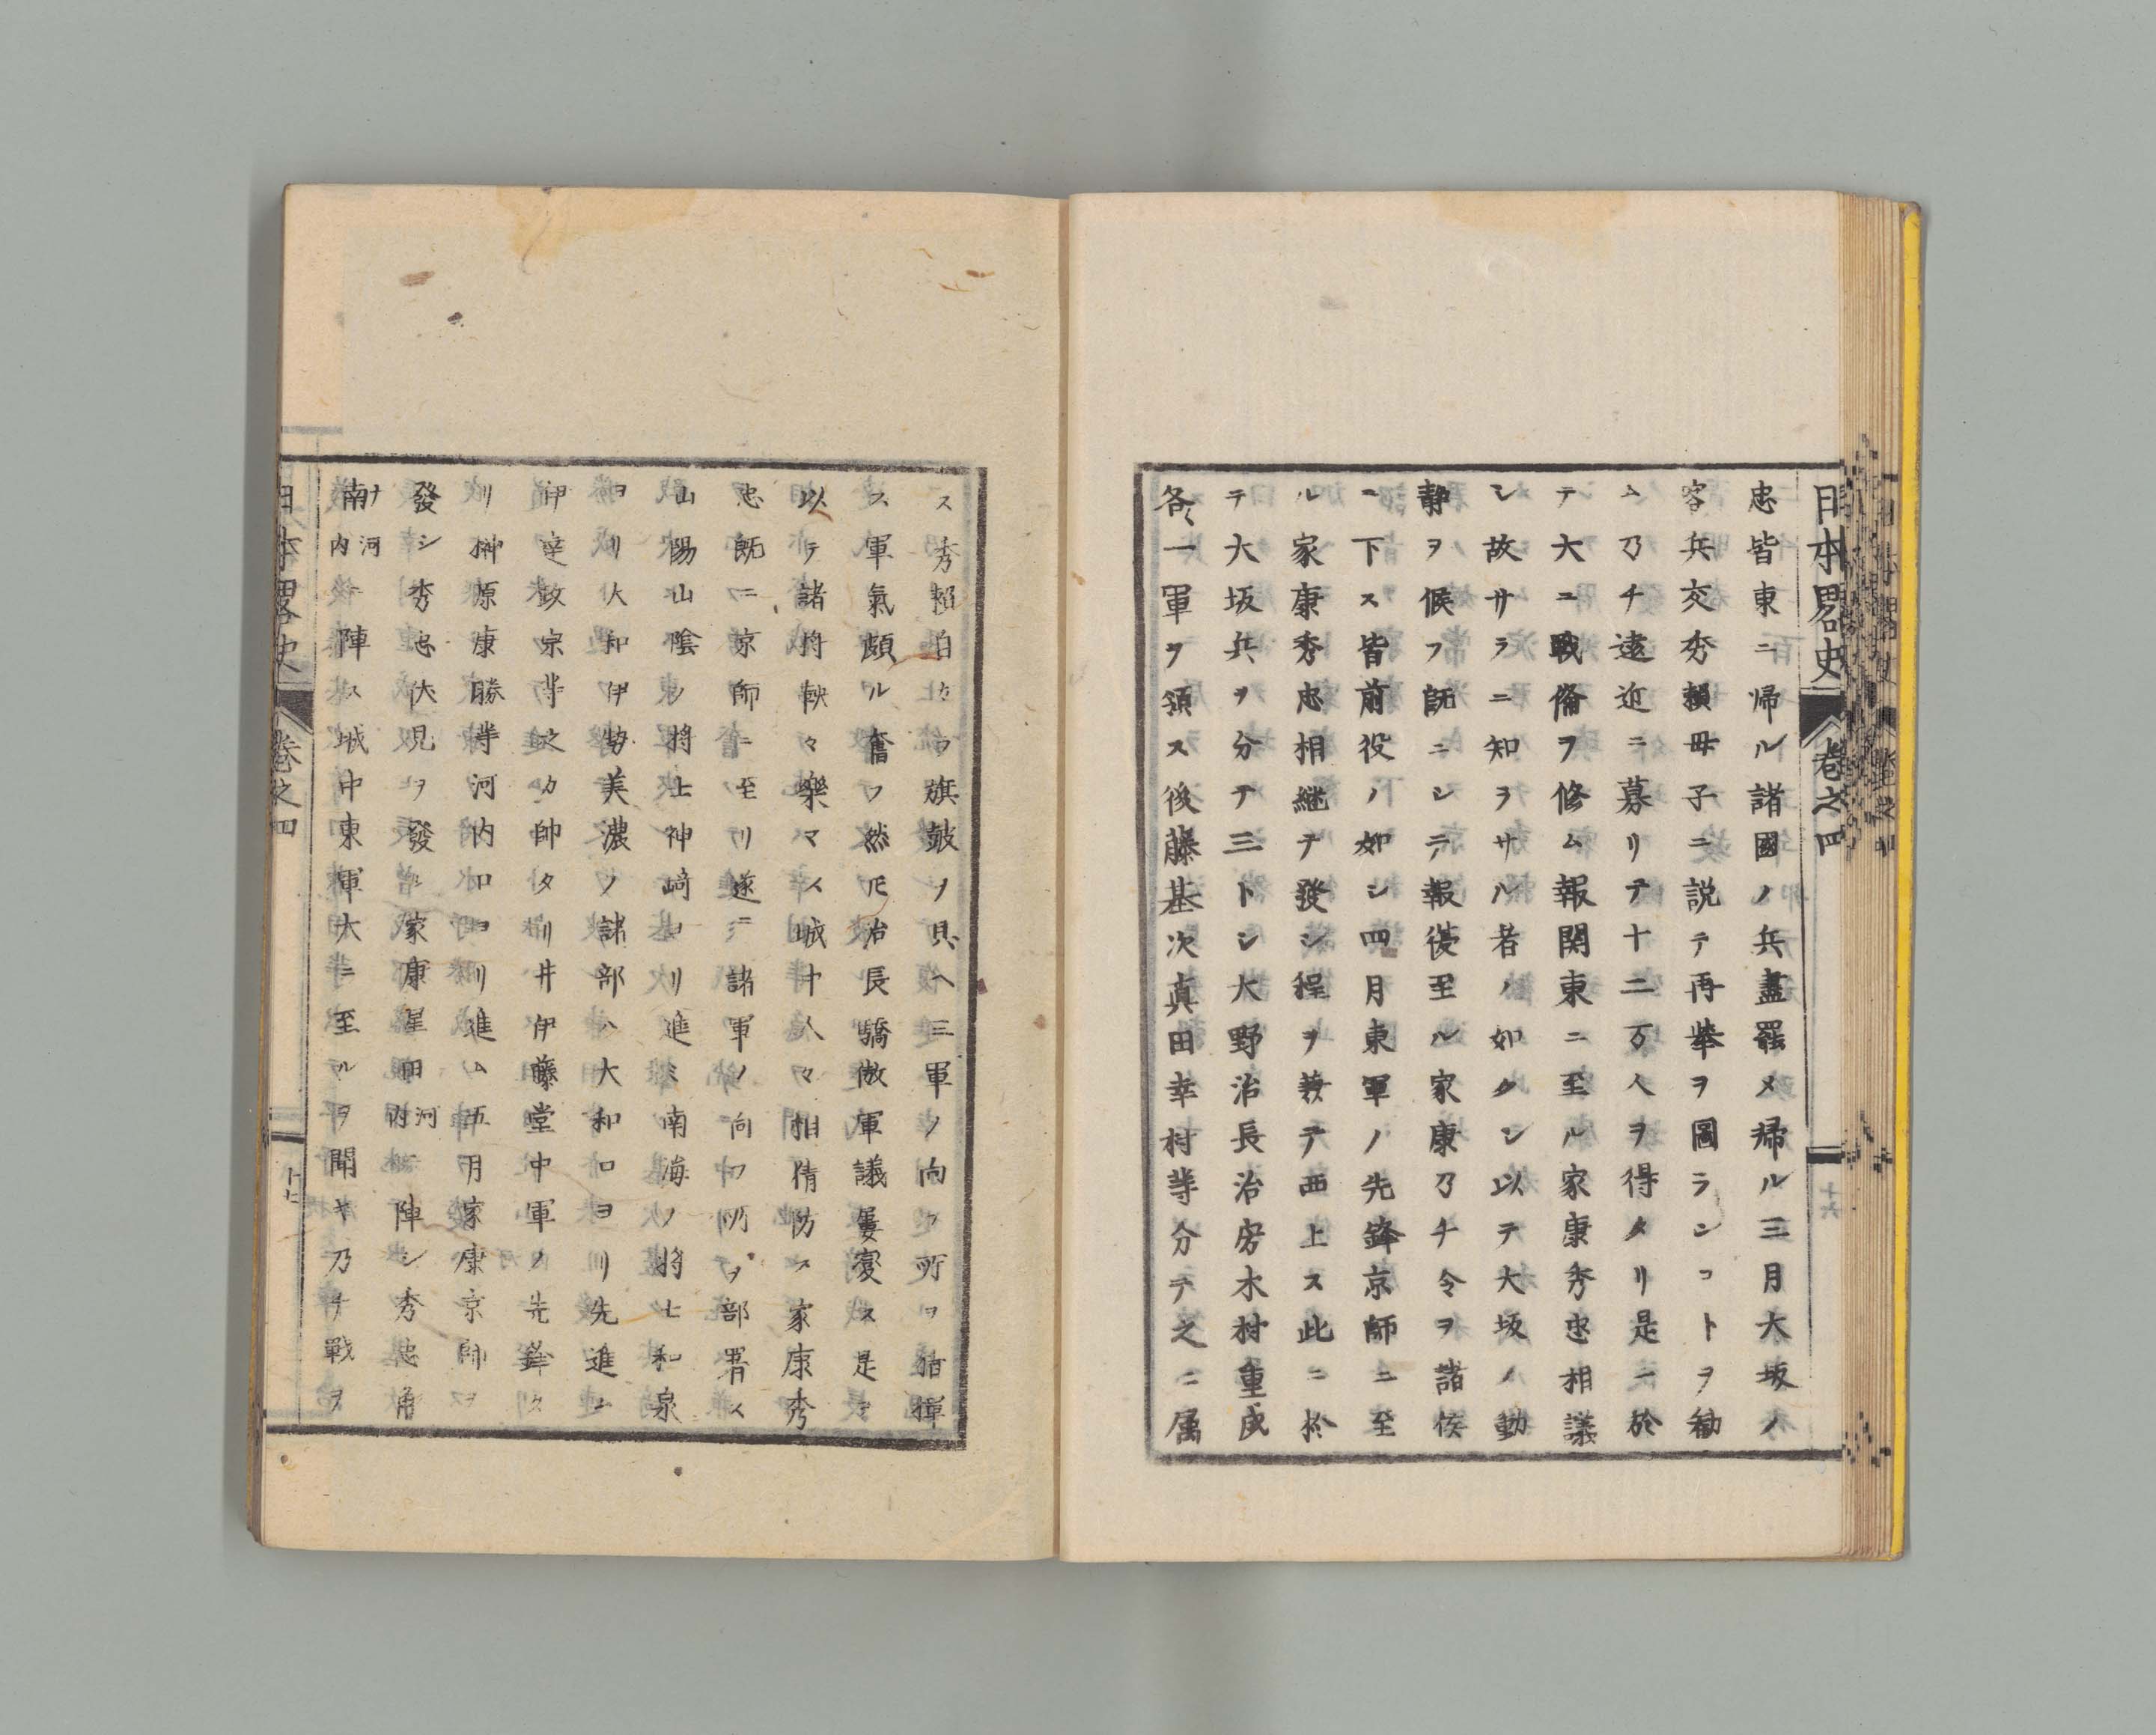 日本畧史 卷之四
忠皆東ニ帰ル諸國ノ兵盡罷メ帰ル三月大坂ノ
客兵交秀頼母子ニ説テ再挙ヲ圖ランコトヲ勧
ム乃チ遠近ニ募リテ十二万人ヲ得タリ是ニ於
テ大ニ戰備ヲ修ム報関東ニ至ル家康秀忠相議
シ故サラニ知ヲサル者ノ如クシ以テ大坂ノ動
静ヲ候フ既ニシテ報復至ル家康乃チ令ヲ諸侯
ニ下ス皆前役ノ如シ四月東軍ノ先鋒京師ニ至
ル家康秀忠相継テ發シ程ヲ兼テ西上ス此ニ於
テ大坂兵ヲ分テ三トシ大野治長治房木村重成
各一軍ヲ領ス後藤基次真田幸村等分テ之ニ属
ス秀頼自カラ旗鼓ヲ具ヘ三軍ノ向フ所ヲ指揮
ス軍氣頗ル奮フ然𪜈治長驕傲軍議屢変ス是ヲ
以テ諸将鞅々樂マス城中人々相猜防ス家康秀
忠既ニ京師ニ至リ遂ニ諸軍ノ向フ所ヲ部署ス
山陽山陰ノ将士神﨑ヨリ進ミ南海ノ将士和泉
ヨリ大和伊勢美濃ノ諸部ハ大和口ヨリ先進ニ
伊達政宗等之カ帥タリ井伊藤堂中軍ノ先鋒タ
リ榊原康勝等河内口ヨリ進ム五月家康京師ヲ
發シ秀忠伏見ヲ發ス家康星田河内ニ陣シ秀忠角
南ナ河内ニ陣ス城中東軍大ニ至ルヲ聞キ乃チ戰ヲ
日本畧史 卷之四
十七